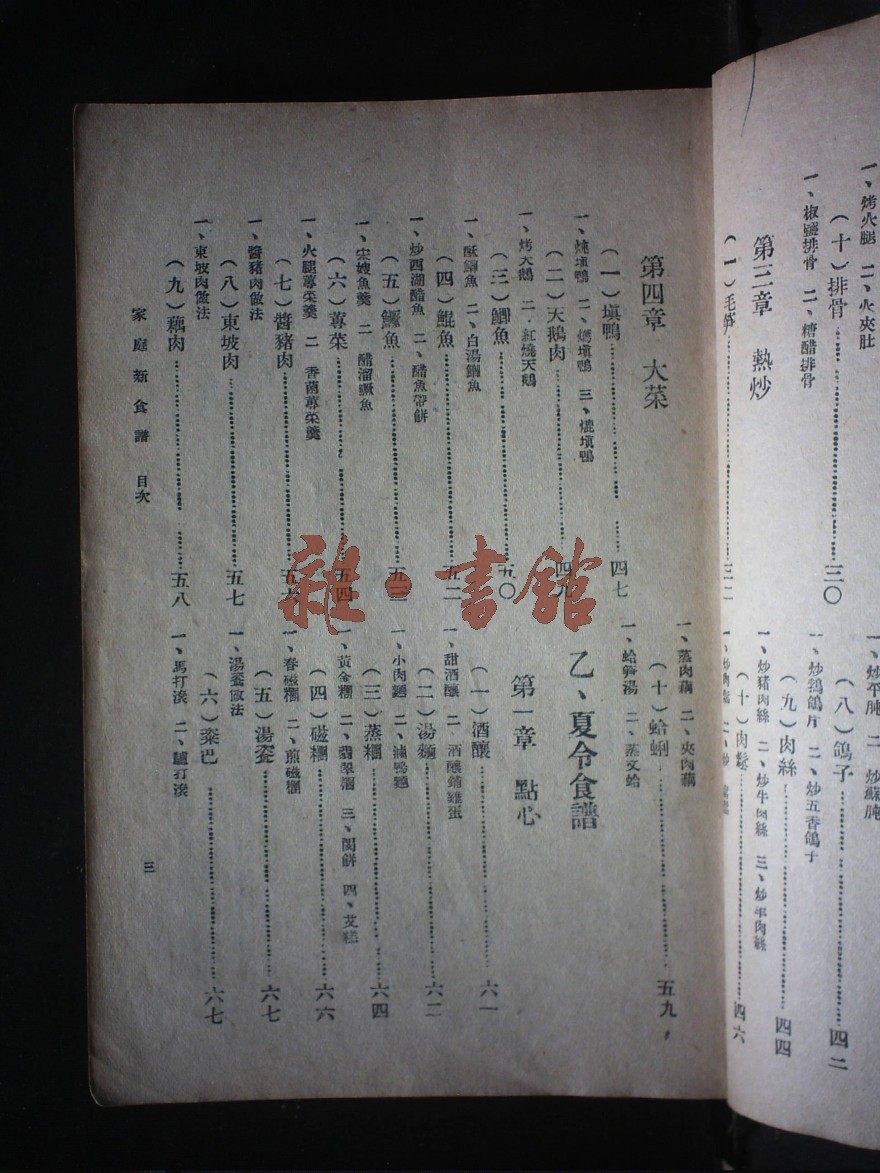 一、烤火腿 二、火夾肚
(十)排骨 三〇
一、椒鹽排骨 二、糖醋排骨
第三章 熱炒
(一)毛筍 三二
二、炒蘇肫
(八)鴿子 四二
一、炒鵓鴿片 二、炒五香鴿子
(九)肉絲 四四
一、炒豬肉絲 二、炒牛肉絲 三、炒羊肉絲
(十)肉鬆 四六
第四章 大菜
(一)塡鴨 四七
一、燉塡鴨 二、 塡鴨 三、 塡鴨
(二)天鵝肉 四九
一、烤天鵝 二、紅燒天鵝
(三)鯽魚 五〇
一、酥鯽魚 二、白湯鯽魚
(四)鯤魚 五二
一、炒西湖醋魚 二、醋魚帶餅
(五)鱖魚 五三
一、宋嫂魚羹 二、醋溜鱖魚
(六)蓴菜 五四
一、火腿蓴菜羹 二、香菌蓴菜羹
(七)醬豬肉 五六
一、醬豬肉做法
(八)東坡肉 五七
一、東坡肉做法
(九)藕肉 五八
一、蒸肉藕 二、夾肉藕
(十)蛤蜊 五九
一、蛤筍湯 二、蒸文蛤
乙、夏令食譜
第一章 點心
(一)酒釀 六一
一、甜酒釀 二、酒釀鋪雞蛋
(二)湯麵 六二
一、小肉麵 二、滷鴨麵
(三)蒸糰 六四
一、黃金糰 二、翡翠糰 三、閔餅 四、艾糕
(四)磁糰 六六
一、春磁糰 二、煎磁糰
(五)湯瓷 六七
一、湯瓷做法
(六)粢巴 六七
一、馬打滾 二、驢打滾
家庭新食譜 目次
三
雜·書館